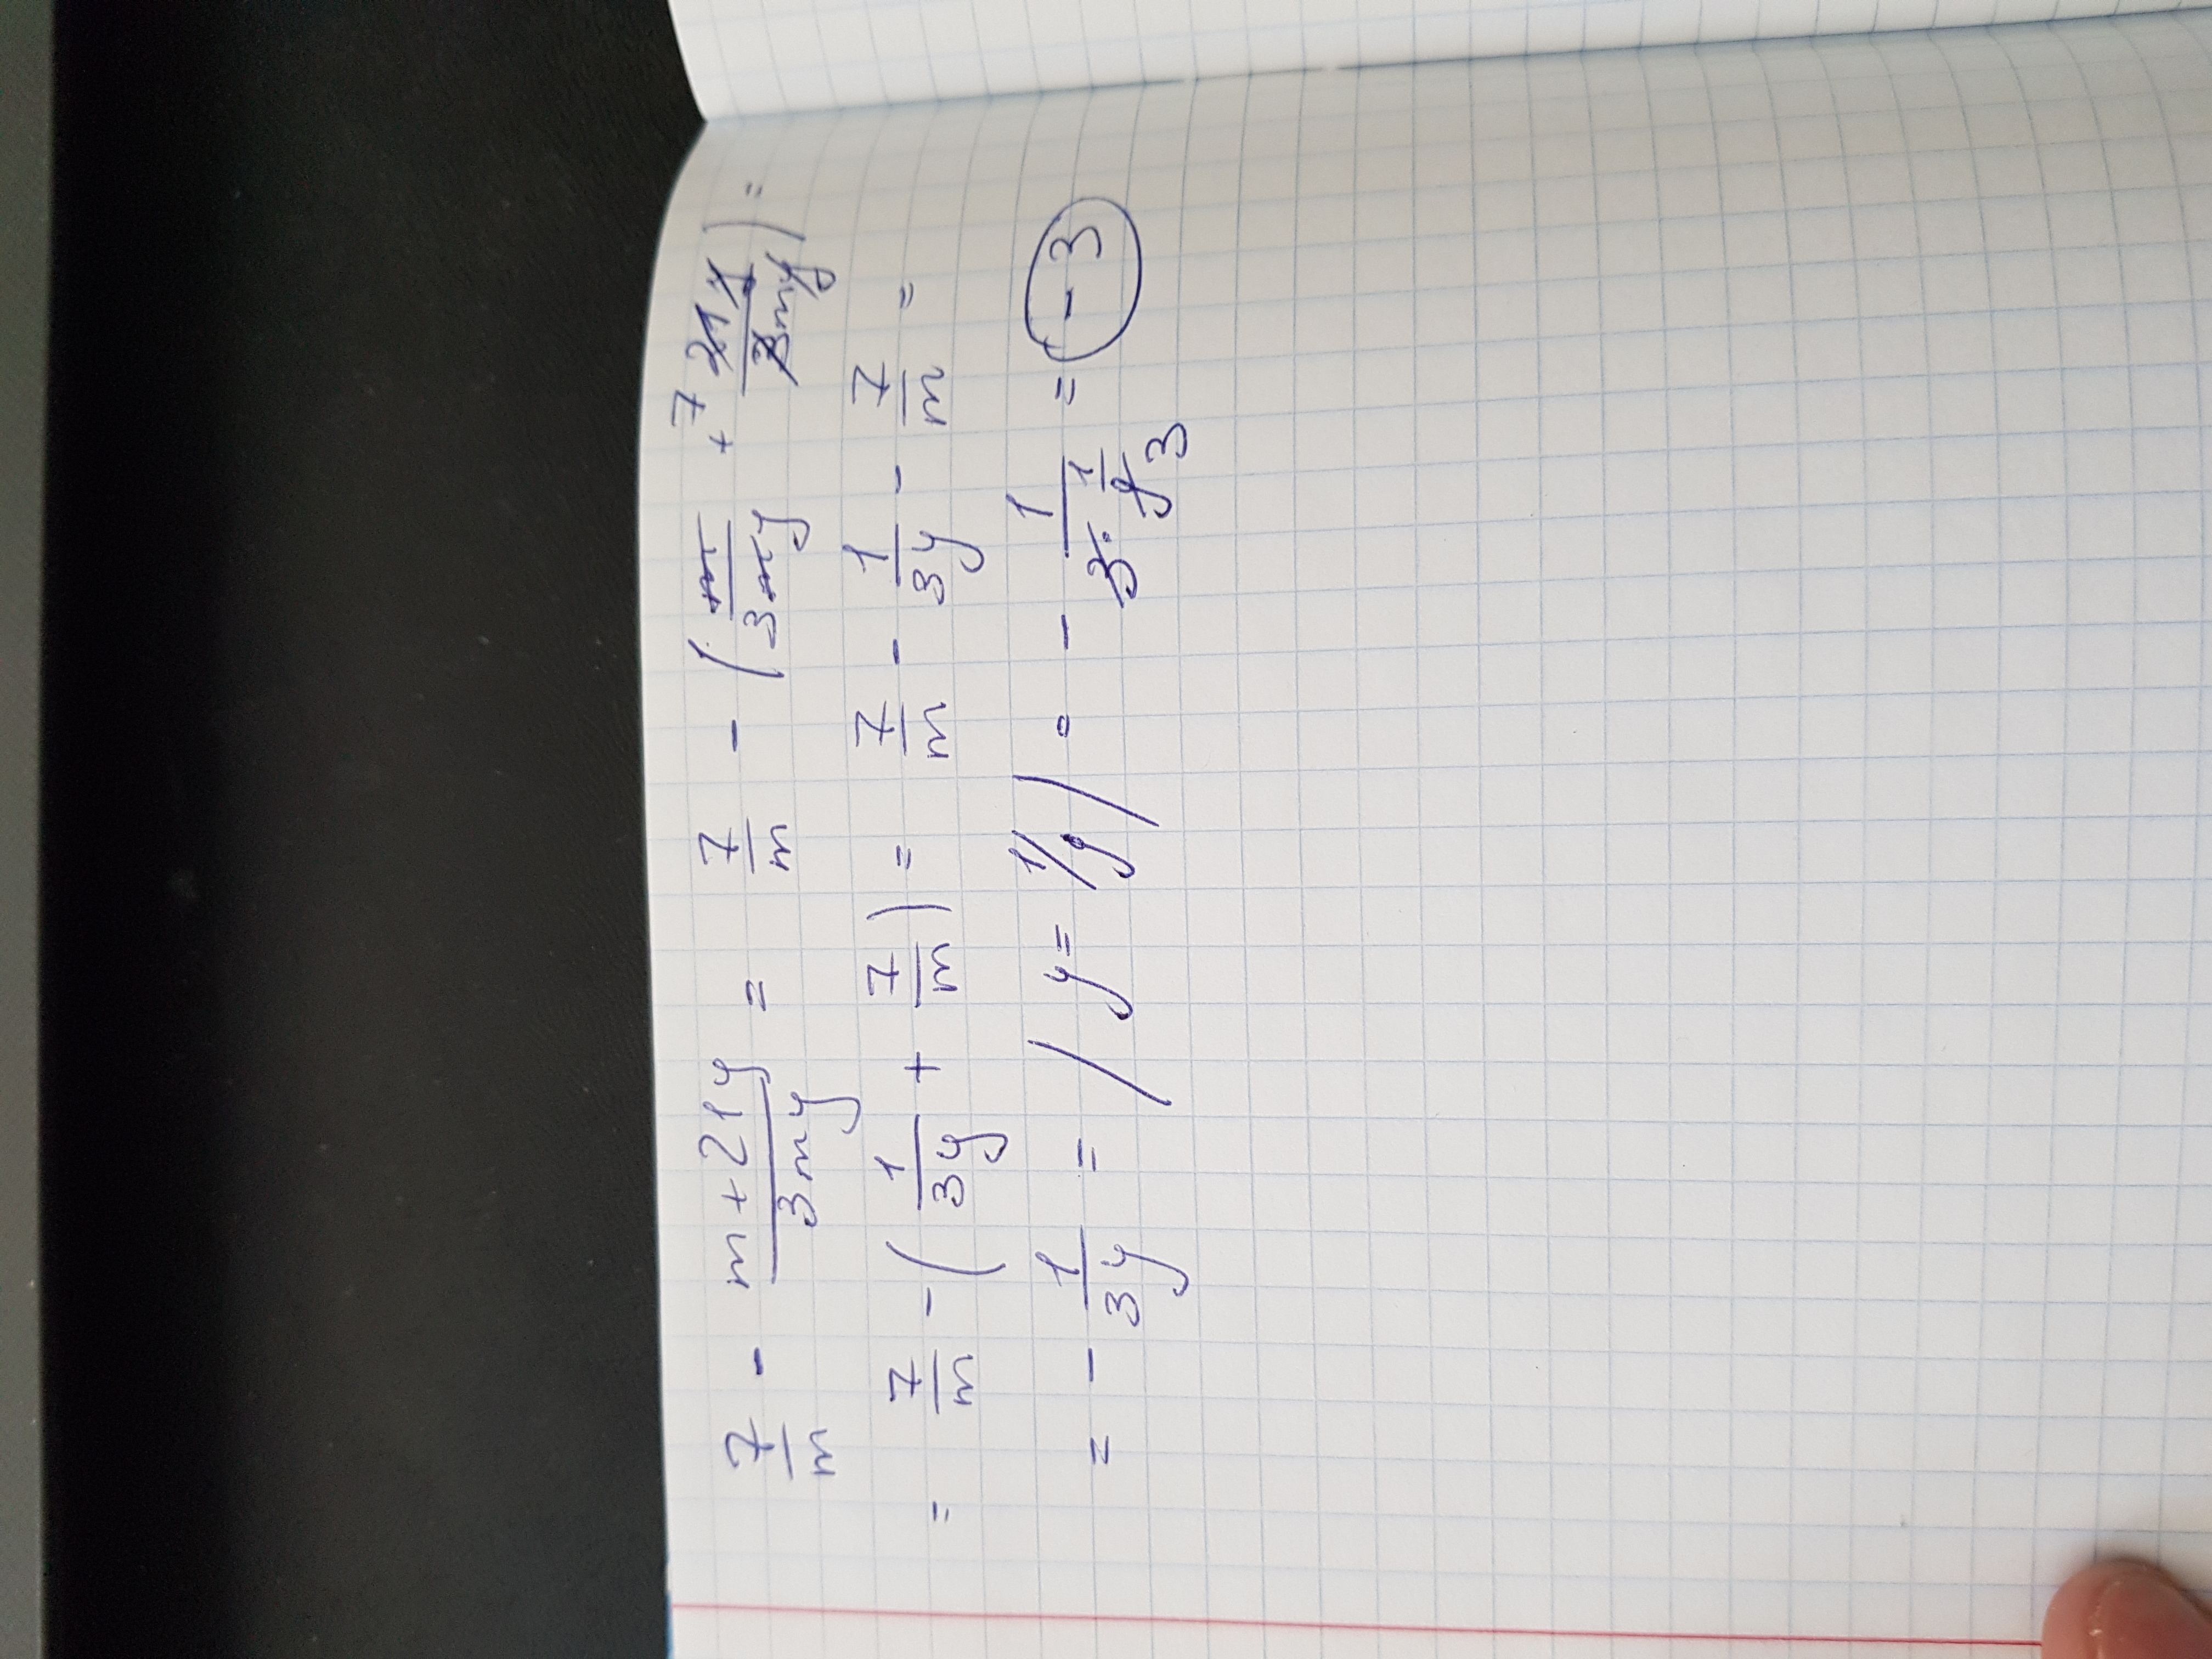 7/m - (m+21y)/(3my) = 7/m - (m/(3my) + 7 21y/(3my)) =
= 7/m - (1/(3y) + 7/m) = 7/m - 1/(3y) - 7/m =
= - 1/(3y) = / y = 1/9 / = - 1/(3 · 1/9 3) = -3